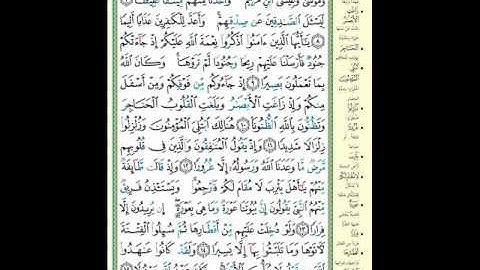 وَمُوسَىٰ وَعِيسَى ٱبْنِ مَرْيَمَ ۖ وَأَخَذْنَا مِنْهُم مِّيثَـٰقًا غَلِيظًا ٧
لِّيَسْـَٔلَ ٱلصَّـٰدِقِينَ عَن صِدْقِهِمْ ۚ وَأَعَدَّ لِلْكَـٰفِرِينَ عَذَابًا أَلِيمًا
٨ يَـٰٓأَيُّهَا ٱلَّذِينَ ءَامَنُوا۟ ٱذْكُرُوا۟ نِعْمَةَ ٱللَّهِ عَلَيْكُمْ إِذْ جَآءَتْكُمْ
جُنُودٌ فَأَرْسَلْنَا عَلَيْهِمْ رِيحًا وَجُنُودًا لَّمْ تَرَوْهَا ۚ وَكَانَ ٱللَّهُ
بِمَا تَعْمَلُونَ بَصِيرًا ٩ إِذْ جَآءُوكُم مِّن فَوْقِكُمْ وَمِنْ أَسْفَلَ
مِنكُمْ وَإِذْ زَاغَتِ ٱلْأَبْصَـٰرُ وَبَلَغَتِ ٱلْقُلُوبُ ٱلْحَنَاجِرَ
وَتَظُنُّونَ بِٱللَّهِ ٱلظُّنُونَا۠ ١٠ هُنَالِكَ ٱبْتُلِىَ ٱلْمُؤْمِنُونَ وَزُلْزِلُوا۟
زِلْزَالًا شَدِيدًا ١١ وَإِذْ يَقُولُ ٱلْمُنَـٰفِقُونَ وَٱلَّذِينَ فِى قُلُوبِهِم
مَّرَضٌ مَّا وَعَدَنَا ٱللَّهُ وَرَسُولُهُۥٓ إِلَّا غُرُورًا ١٢ وَإِذْ قَالَت طَّآئِفَةٌ
مِّنْهُمْ يَـٰٓأَهْلَ يَثْرِبَ لَا مُقَامَ لَكُمْ فَٱرْجِعُوا۟ ۚ وَيَسْتَـْٔذِنُ فَرِيقٌ
مِّنْهُمُ ٱلنَّبِىَّ يَقُولُونَ إِنَّ بُيُوتَنَا عَوْرَةٌ وَمَا هِىَ بِعَوْرَةٍ ۖ إِن يُرِيدُونَ إِلَّا
فِرَارًا ١٣ وَلَوْ دُخِلَتْ عَلَيْهِم مِّنْ أَقْطَارِهَا ثُمَّ سُئِلُوا۟ ٱلْفِتْنَةَ
لَـَٔاتَوْهَا وَمَا تَلَبَّثُوا۟ بِهَآ إِلَّا يَسِيرًا ١٤ وَلَقَدْ كَانُوا۟ عَـٰهَدُوا۟